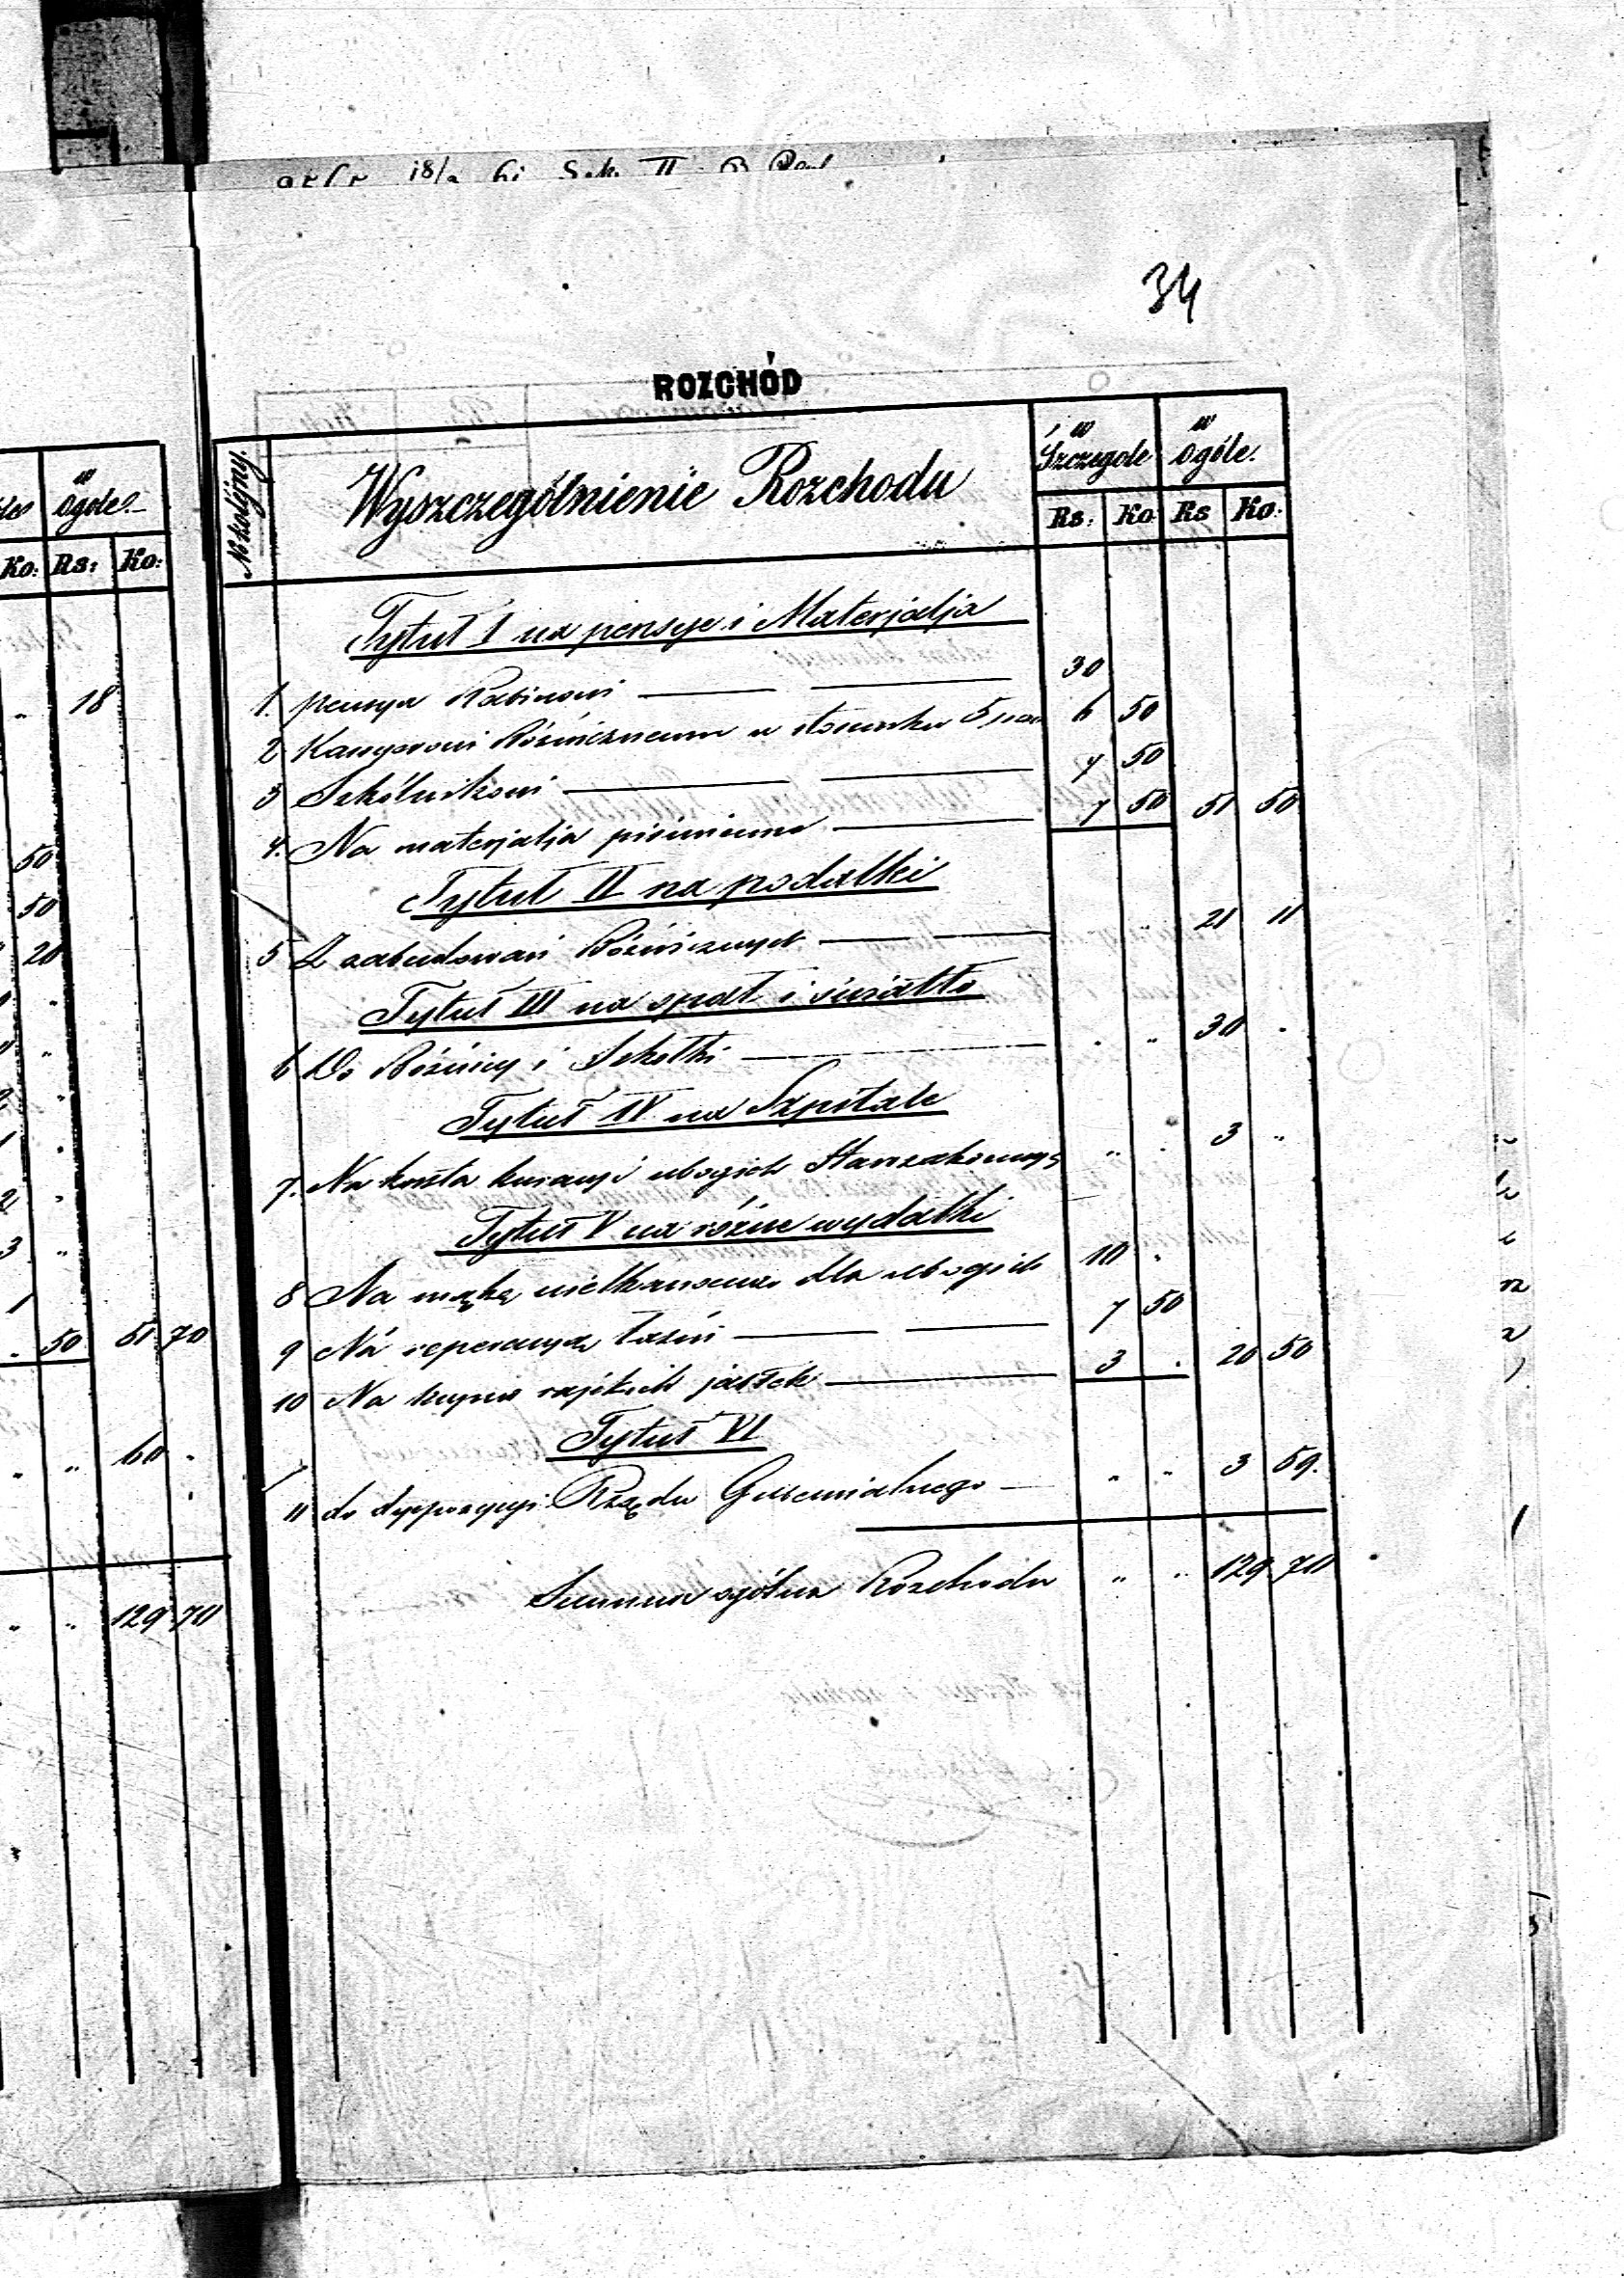 34
ROZCHÓD
No kolejny. Wyszczególnienie Rozchodu w Szczególe w Ogóle.
Rs: Ko Rs Ko:
Tytuł I na pensye i Materjalja
1. pensya Rabinowi 30
2 Kassyerowi Bóżnicznemu w stosunku 5 6 50
3 Szkólnikowi 7 50
4. Na materjalja piśmienne 7 50 51 50
Tytuł II na podatki
5 Z zabudowań Bóżniczych " 21 11
Tytuł III na opał i światło
6 Do Bóżnicy i Szkółki . " 30 .
Tytuł IV na Szpitale
7. Na koszta kuracyi ubogich Starozakonnych " . 3 "
Tytuł V na różne wydatki
8 Na mąkę wielkanocną dla ubogich 10 .
9 Na reperacyą łaźni 7 50
10 Na kupno rajskich jabłek 3 . 20 50
Tytuł VI
11 do dyspozycyi Rządu Gubernialnego " " 3 59.
Summa ogólna Rozchodu " " 129 70
w Ogóle.
Ko: Rs: Ko:
" 18
50
50
20
. 50 51 70
" " 60 .
" " 129 70